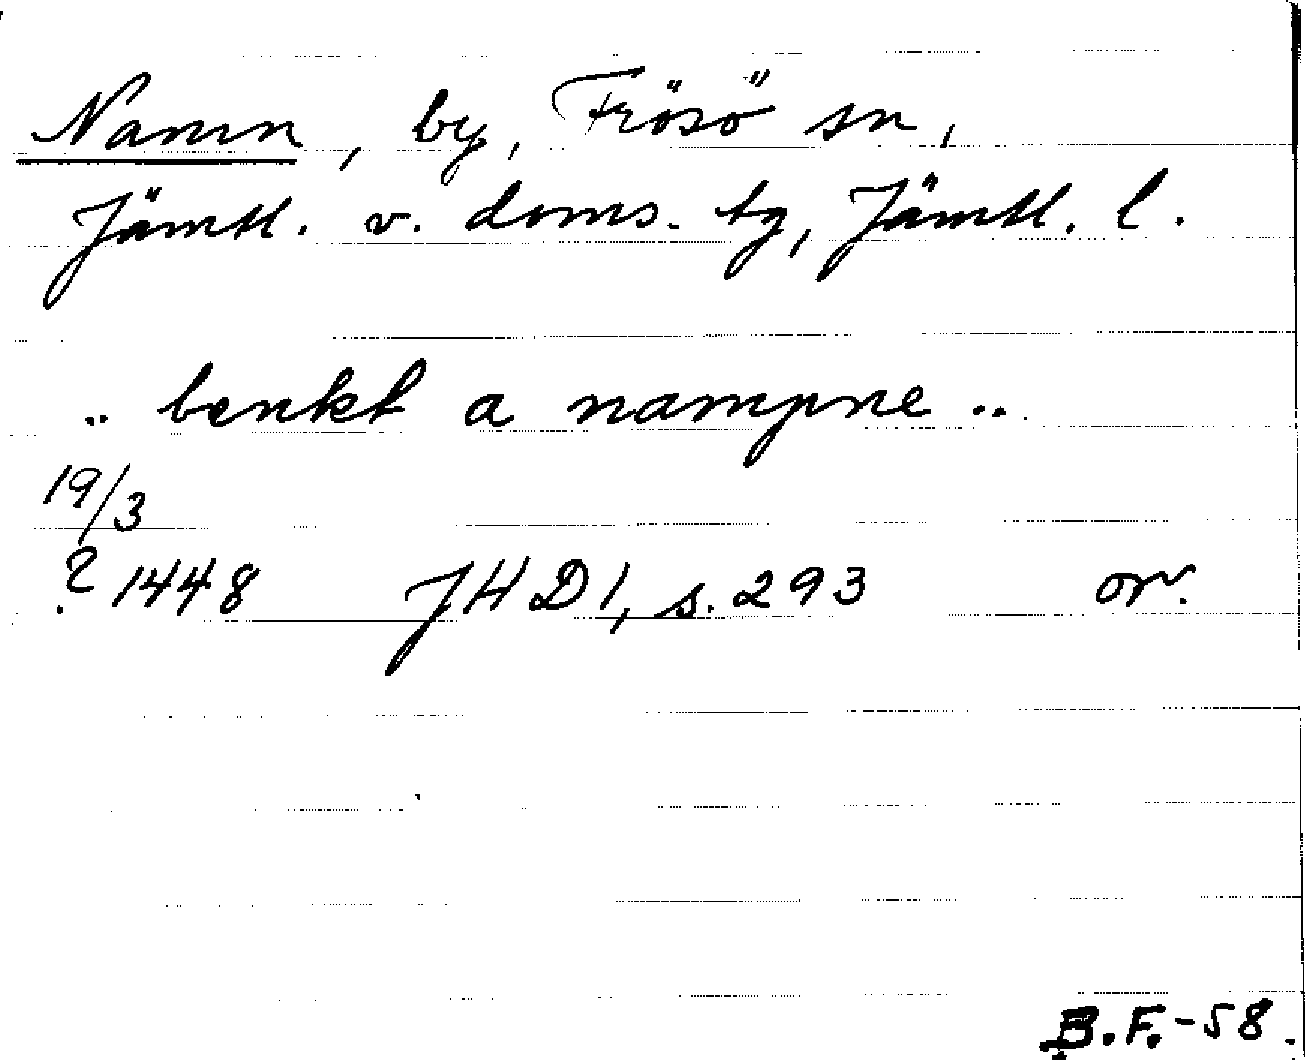 Namn, by, Frösö sn,
Jämtl. v. doms. tg, Jämtl. l.
.. benkt a nampne ..
19/3
? 1448 JHD 1, s. 293 or.
B.F.-58.